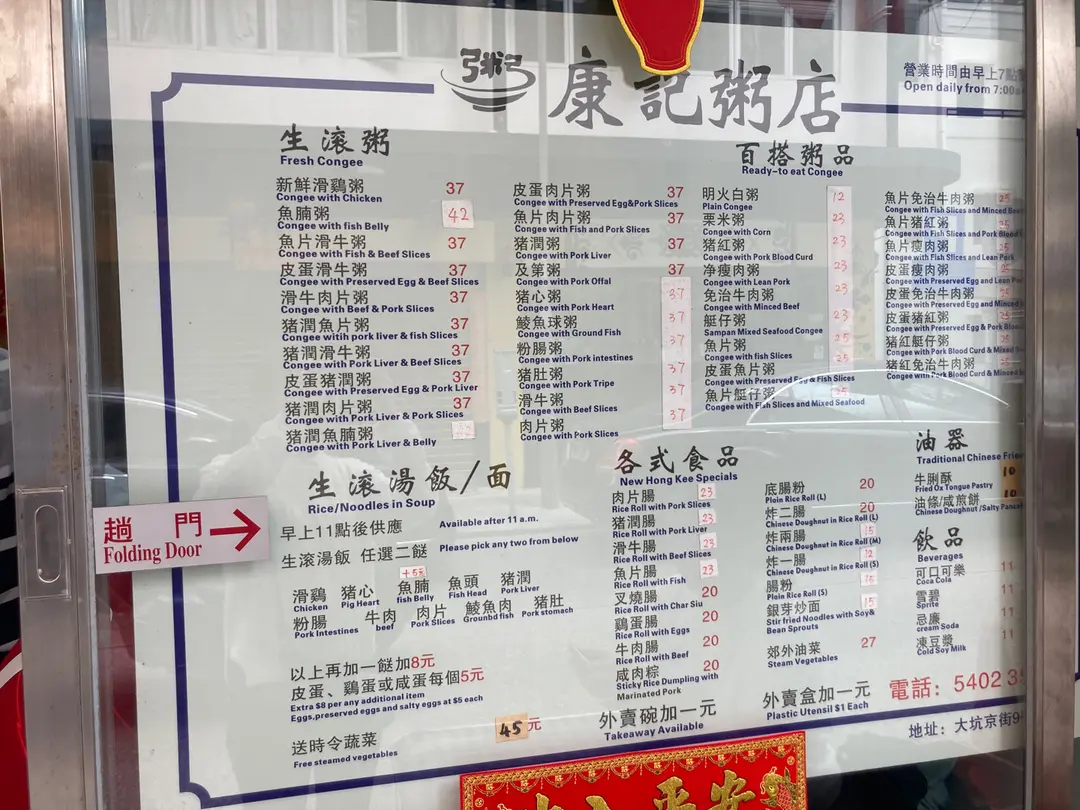 康記粥店
營業時間由早上7點
Open daily from 7:00a
生滾粥
Fresh Congee
新鮮滑鷄粥 37
Congee with Chicken
魚腩粥 42
Congee with fish Belly
魚片滑牛粥 37
Congee with Fish & Beef Slices
皮蛋滑牛粥 37
Congee with Preserved Egg & Beef Slices
滑牛肉片粥 37
Congee with Beef & Pork Slices
猪潤魚片粥 37
Congee witih pork liver & fish Slices
猪潤滑牛粥 37
Congee with Pork Liver & Beef Slices
皮蛋猪潤粥 37
Congee with Preserved Egg & Pork Liver
猪潤肉片粥 37
Congee with Pork Liver & Pork Slices
猪潤魚腩粥
Congee with Pork Liver & Belly
皮蛋肉片粥 37
Congee with Preserved Egg&Pork Slices
魚片肉片粥 37
Congee with Fish and Pork Slices
猪潤粥 37
Congee with Pork Liver
及第粥 37
Congee with Pork Offal
猪心粥 37
Congee with Pork Heart
鯪魚球粥 37
Congee with Ground Fish
粉腸粥 37
Congee with Pork intestines
猪肚粥 37
Congee with Pork Tripe
滑牛粥 37
Congee with Beef Slices
肉片粥 37
Congee with Pork Slices
百搭粥品
Ready-to eat Congee
明火白粥 12
Plain Congee
栗米粥 23
Congee with Corn
猪紅粥 23
Congee with Pork Blood Curd
净瘦肉粥 23
Congee with Lean Pork
免治牛肉粥 23
Congee with Minced Beef
艇仔粥 23
Sampan Mixed Seafood Congee
魚片粥 25
Congee with fish Slices
皮蛋魚片粥 25
Congee with Preserved Egg & Fish Slices
魚片艇仔粥 25
Congee with Fish Slices and Mixed Seafood
魚片免治牛肉粥 25
Congee with Fish Slices and Minced Bee
魚片猪紅粥 25
Congee with Fish Slices and Pork Blood
魚片瘦肉粥 25
Congee with Fish Slices and Lean Pork
皮蛋瘦肉粥 25
Congee with Preserved Egg and Lean P
皮蛋免治牛肉粥 25
Congee with Preserved Egg and Minced
皮蛋猪紅粥 25
Congee with Preserved Egg & Pork Bl
猪紅艇仔粥 25
Congee with Pork Blood Curd & Mixed
猪紅免治牛肉粥 25
Congee with Pork Blood Curd & Minced
生滾湯飯/面
Rice/Noodles in Soup
早上11點後供應 Available after 11 a.m.
生滾湯飯 任選二餸 Please pick any two from below
+5元
滑鷄 猪心 魚腩 魚頭 猪潤
Chicken Pig Heart fish Belly Fish Head Pork Liver
粉腸 牛肉 肉片 鯪魚肉 猪肚
Pork Intestines beef Pork Slices Groundbd fish Pork stomach
以上再加一餸加8元
皮蛋、鷄蛋或咸蛋每個5元
Extra $8 per any additional item
Eggs,preserved eggs and salty eggs at $5 each
送時令蔬菜 45元
Free steamed vegetables
各式食品
New Hong Kee Specials
肉片腸 23
Rice Roll with Pork Slices
猪潤腸 23
Rice Roll with Pork Liver
滑牛腸 23
Rice Roll with Beef Slices
魚片腸 23
Rice Roll with Fish
叉燒腸 20
Rice Roll with Char Siu
鷄蛋腸 20
Rice Roll with Eggs
牛肉腸 20
Rice Roll with Beef
咸肉粽 20
Sticky Rice Dumpling with
Marinated Pork
外賣碗加一元
Takeaway Available
底腸粉 20
Plain Rice Roll (L)
炸二腸 20
Chinese Doughnut in Rice Roll (L)
炸兩腸 15
Chinese Doughnut in Rice Roll (M)
炸一腸 12
Chinese Doughnut in Rice Roll (S)
腸粉 15
Plain Rice Roll (S)
銀芽炒面 15
Stir fried Noodles with Soy&
Bean Sprouts
郊外油菜 27
Steam Vegetables
外賣盒加一元
Plastic Utensil $1 Each
油器
Traditional Chinese Frie
牛脷酥 10
Fried Ox Tongue Pastry
油條/咸煎餅 10
Chinese Doughnut /Salty Panca
飲品
Beverages
可口可樂 11
Coca Cola
雪碧 11
Sprite
忌廉 11
cream Soda
凍豆漿 11
Cold Soy Milk
電話：5402 3
地址：大坑京街9
趟門
Folding Door
出入平安